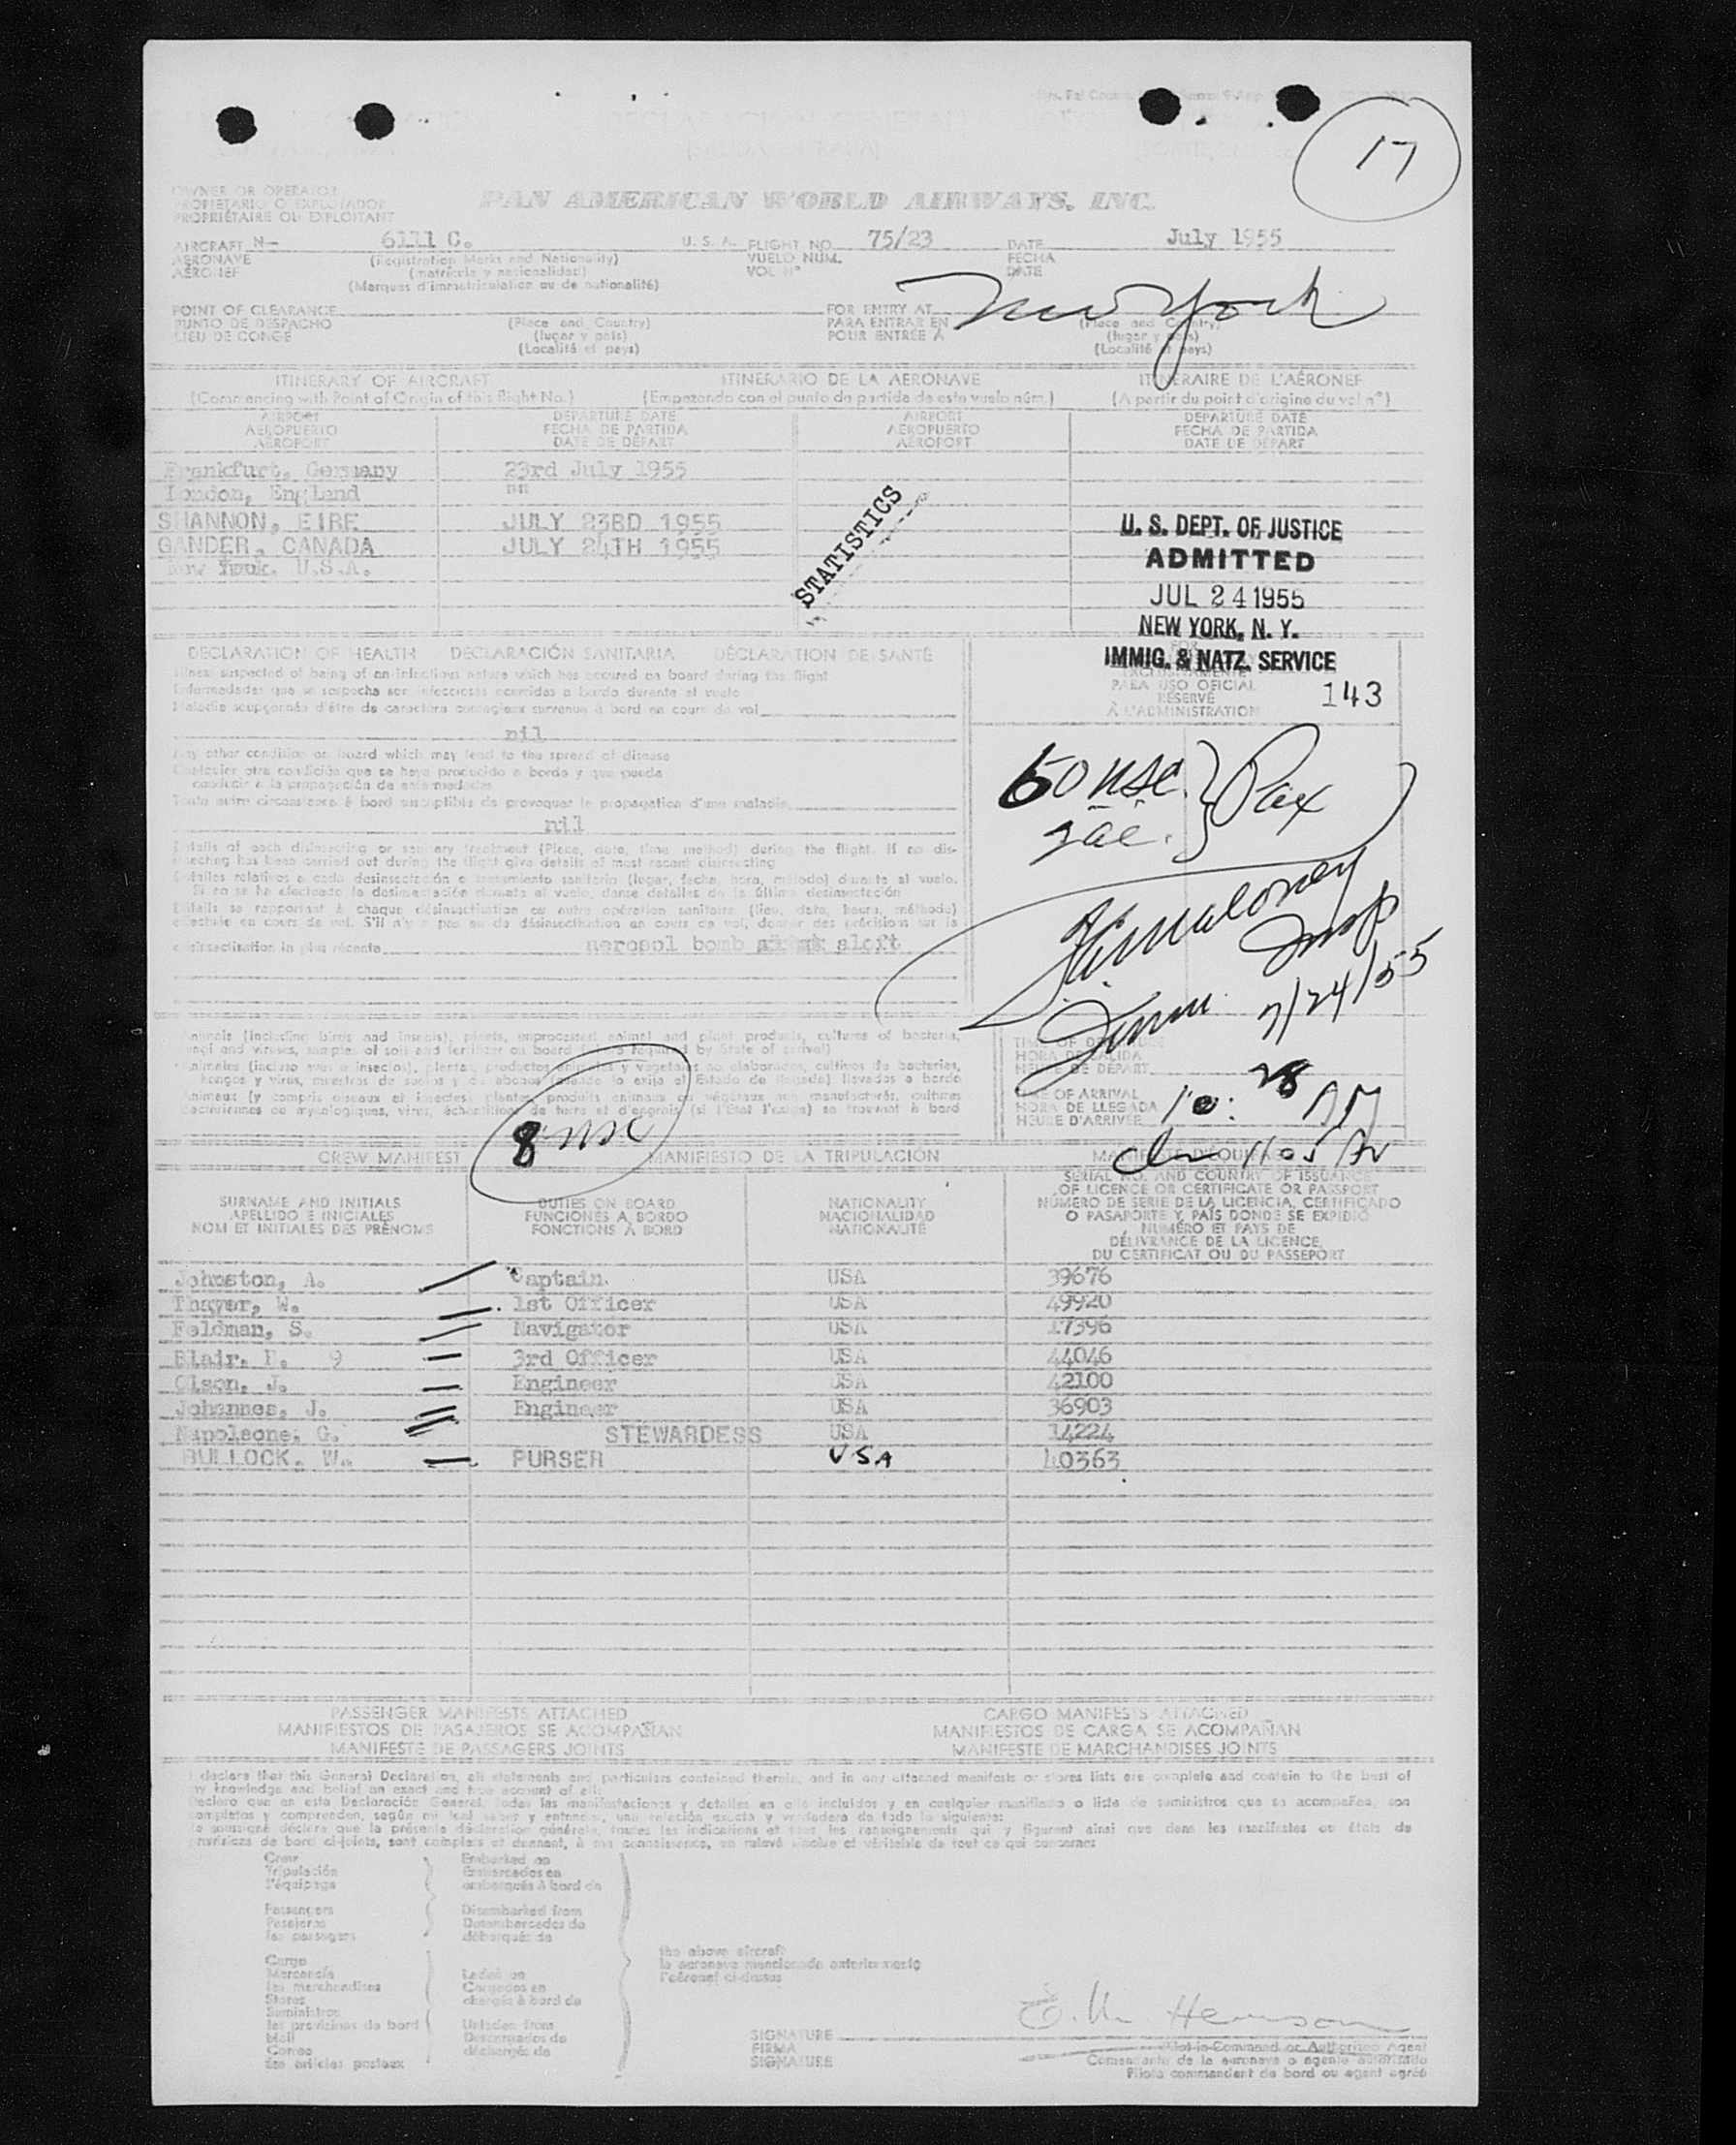 17
OWNER OR OPERATOR
PROPIETARIO O EXPLOTADOR
PROPRIÉTAIRE OU EXPLOITANT
PAN AMERICAN WORLD AIRWAYS, INC.
AIRCRAFT N— 6111 C. U. S. A. FLIGHT NO. 75/23 DATE July 1955
AERONAVE (Registration Marks and Nationality) VUELO NÚM. FECHA
AÉRONEF (matrícula y nacionalidad) VOL Nº DATE
(Marques d'immatriculation ou de nationalité)
POINT OF CLEARANCE FOR ENTRY AT New York
PUNTO DE DESPACHO (Place and Country) PARA ENTRAR EN (Place and Country)
LIEU DE CONGÉ (lugar y país) POUR ENTRÉE À (lugar y país)
(Localité et pays) (Localité et pays)
ITINERARY OF AIRCRAFT ITINERARIO DE LA AERONAVE ITINÉRAIRE DE L'AÉRONEF
(Commencing with Point of Origin of this flight No.) (Empezando con el punto de partida de este vuelo núm.) (A partir du point d'origine du vol nº)
AIRPORT DEPARTURE DATE AIRPORT DEPARTURE DATE
AEROPUERTO FECHA DE PARTIDA AEROPUERTO FECHA DE PARTIDA
AÉROPORT DATE DE DÉPART AÉROPORT DATE DE DÉPART
Frankfurt, Germany 23rd July 1955
London, England "
SHANNON, EIRE JULY 23RD 1955
GANDER, CANADA JULY 24TH 1955
New York. U.S.A.
STATISTICS
U. S. DEPT. OF JUSTICE
ADMITTED
JUL 24 1955
NEW YORK, N. Y.
IMMIG. & NATZ. SERVICE
143
DECLARATION OF HEALTH DECLARACIÓN SANITARIA DÉCLARATION DE SANTÉ
Illness suspected of being of an infectious nature which has occured on board during the flight
Enfermedades que se sospecha ser infecciosas ocurridas a bordo durante el vuelo
Maladie soupçonnée d'être de caractère contagieux survenue à bord en cours de vol
nil
EXCLUSIVAMENTE
PARA USO OFICIAL
RÉSERVÉ
À L'ADMINISTRATION
Any other condition on board which may lead to the spread of disease
Cualquier otra condición que se haya producido a bordo y que pueda
conducir a la propagación de enfermedades
Toute autre circonstance à bord susceptible de provoquer la propagation d'une maladie
nil
Details of each disinsecting or sanitary treatment (Place, date, time method) during the flight. If no dis-
insecting has been carried out during the flight give details of most recent disinsecting
Detalles relativos a cada desinsectación o tratamiento sanitario (lugar, fecha, hora, método) durante el vuelo.
Si no se ha efectuado la desinsectación durante el vuelo, dense detalles de la última desinsectación
Détails se rapportant à chaque désinsectisation ou autre opération sanitaire (lieu, date, heure, méthode)
effectuée en cours de vol. S'il n'y a pas eu de désinsectisation en cours de vol, donner des précisions sur la
désinsectisation la plus récente aerosol bomb aloft
50 usc. } Pax
2 ac.
Insp
Imm. 7/24/55
Animals (including birds and insects), plants, unprocessed animal and plant products, cultures of bacteria,
fungi and viruses, samples of soil and fertilizer on board (as required by State of arrival)
Animales (incluso aves e insectos), plantas, productos animales y vegetales no elaborados, cultivos de bacterias,
hongos y virus, muestras de suelos y de abonos (cuando lo exija el Estado de llegada) llevados a bordo
Animaux (y compris oiseaux et insectes, plantes, produits animaux ou végétaux non manufacturés, cultures
bactériennes ou mycologiques, virus, échantillons de terre et d'engrais (si l'État l'exige) se trouvant à bord
TIME OF DEPARTURE
HORA DE SALIDA
HEURE DE DÉPART
TIME OF ARRIVAL
HORA DE LLEGADA 10:28 AM
HEURE D'ARRIVÉE
8 usc
CREW MANIFEST MANIFIESTO DE LA TRIPULACIÓN
SURNAME AND INITIALS DUTIES ON BOARD NATIONALITY SERIAL NO. AND COUNTRY OF ISSUANCE
APELLIDO E INICIALES FUNCIONES A BORDO NACIONALIDAD OF LICENCE OR CERTIFICATE OR PASSPORT
NOM ET INITIALES DES PRÉNOMS FONCTIONS À BORD NATIONALITÉ NÚMERO DE SERIE DE LA LICENCIA, CERTIFICADO
O PASAPORTE Y PAÍS DONDE SE EXPIDIÓ
NUMÉRO ET PAYS DE
DÉLIVRANCE DE LA LICENCE,
DU CERTIFICAT OU DU PASSEPORT
Johnston, A. Captain. USA 39676
Thayer, W. 1st Officer USA 49920
Feldman, S. Navigator USA 17396
Blair, D. 9 3rd Officer USA 44046
Olson, J. Engineer USA 42100
Johannes, J. Engineer USA 36903
Napoleone, G. STEWARDESS USA 14224
BULLOCK. W. PURSER USA 40363
PASSENGER MANIFESTS ATTACHED CARGO MANIFESTS ATTACHED
MANIFIESTOS DE PASAJEROS SE ACOMPAÑAN MANIFIESTOS DE CARGA SE ACOMPAÑAN
MANIFESTE DE PASSAGERS JOINTS MANIFESTE DE MARCHANDISES JOINTS
I declare that this General Declaration, all statements and particulars contained therein, and in any attached manifests or stores lists are complete and contain to the best of
my knowledge and belief an exact and true account of all:
Declaro que en esta Declaración General, todas las manifestaciones y detalles en ella incluidos y en cualquier manifiesto o lista de suministros que se acompañen, son
completos y comprenden, según mi leal saber y entender, una relación exacta y verdadera de todo lo siguiente:
Le soussigné déclare que la présente déclaration générale, toutes les indications et tous les renseignements qui y figurent ainsi que dans les manifestes ou états de
provisions de bord ci-joints, sont complets et donnent, à ma connaissance, un relevé exacte et véritable de tout ce qui concerne:
Crew Embarked on
Tripulación Embarcados en
l'équipage embarqués à bord de
Passengers Disembarked from
Pasajeros Desembarcados de
les passagers débarqués de
the above aircraft
la aeronave mencionada anteriormente
l'aéronef ci-dessus
Cargo
Mercancía Laden on
les marchandises Cargados en
Stores chargés à bord de
Suministros
les provisions de bord Unladen from
Mail Descargados de
Correo déchargés de
des articles postaux
SIGNATURE
FIRMA
SIGNATURE
Pilot-in-Command or Authorized Agent
Comandante de la aeronave o agente autorizado
Pilote commandant de bord ou agent agréé